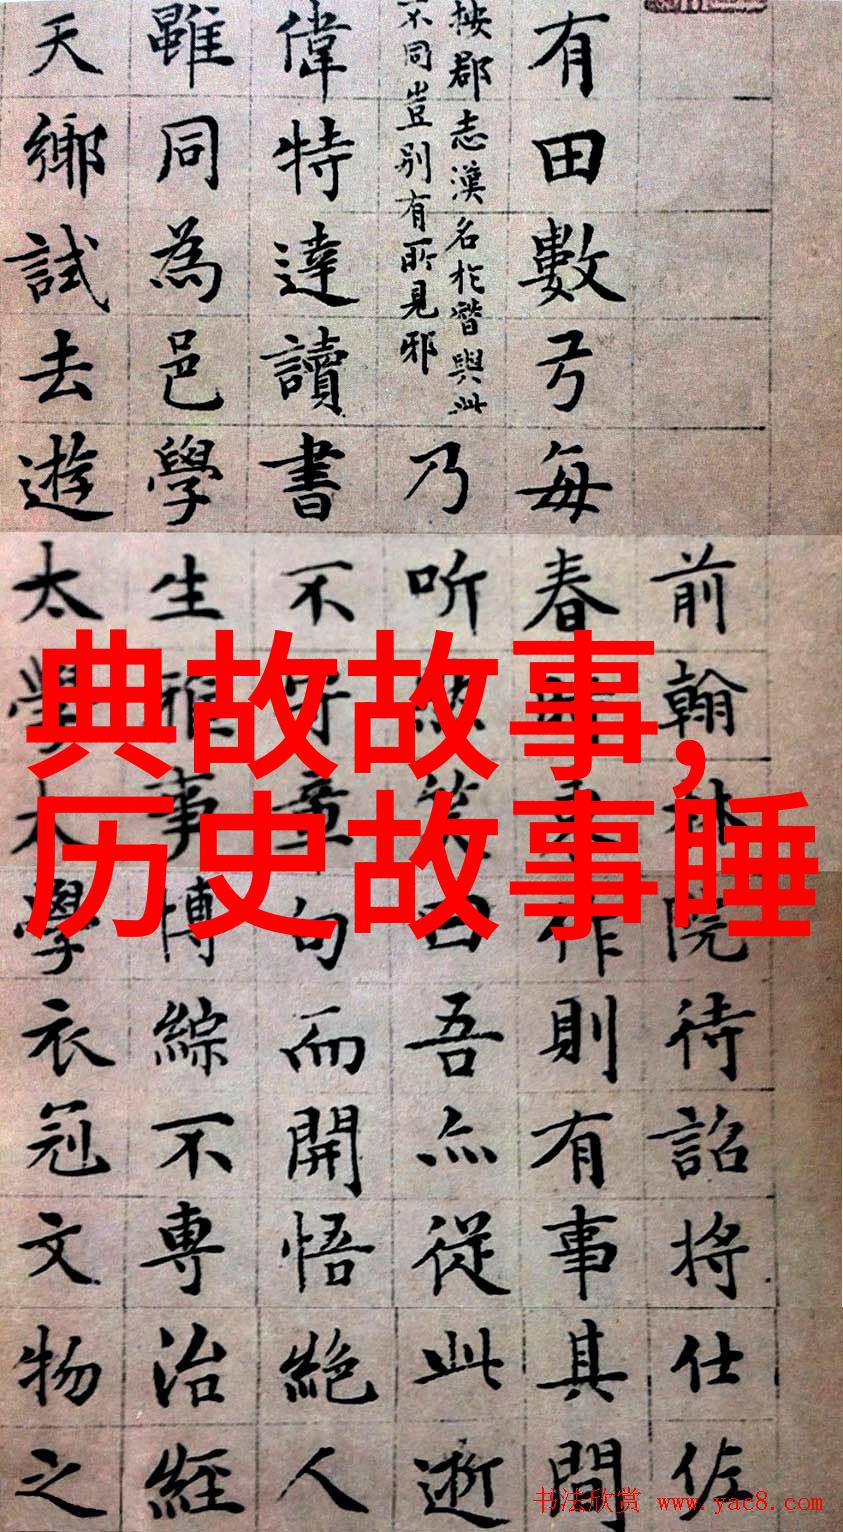 典故故事,
历史故事睡
前翰林院待詔將仕佐
有田數弓每春時東作則有事其間
按郡志漢名於潛與此
不同豈别有所見邪
乃听然笑曰吾亦從此逝
偉特達讀書不守章句而開悟絕人
雖同為邑學生雅事博綜不專治經
天鄉試去遊太學太學衣冠文物之
书法欣赏 www.yac8.com